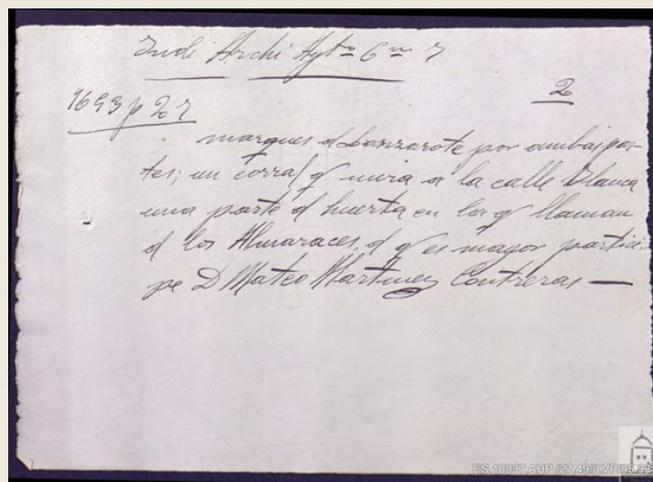 Indi Archi Aytº 6 m 7
2
1693 p 27
marques d Lanzarote por ambas par-
tes; un corral q mira a la calle blanca
una parte d huerta en la q llaman
d los Almaraces, d q es mayor partici-
pe D Mateo Martinez Contreras —
ES.10037.AHP /27.49//LVP/95.33